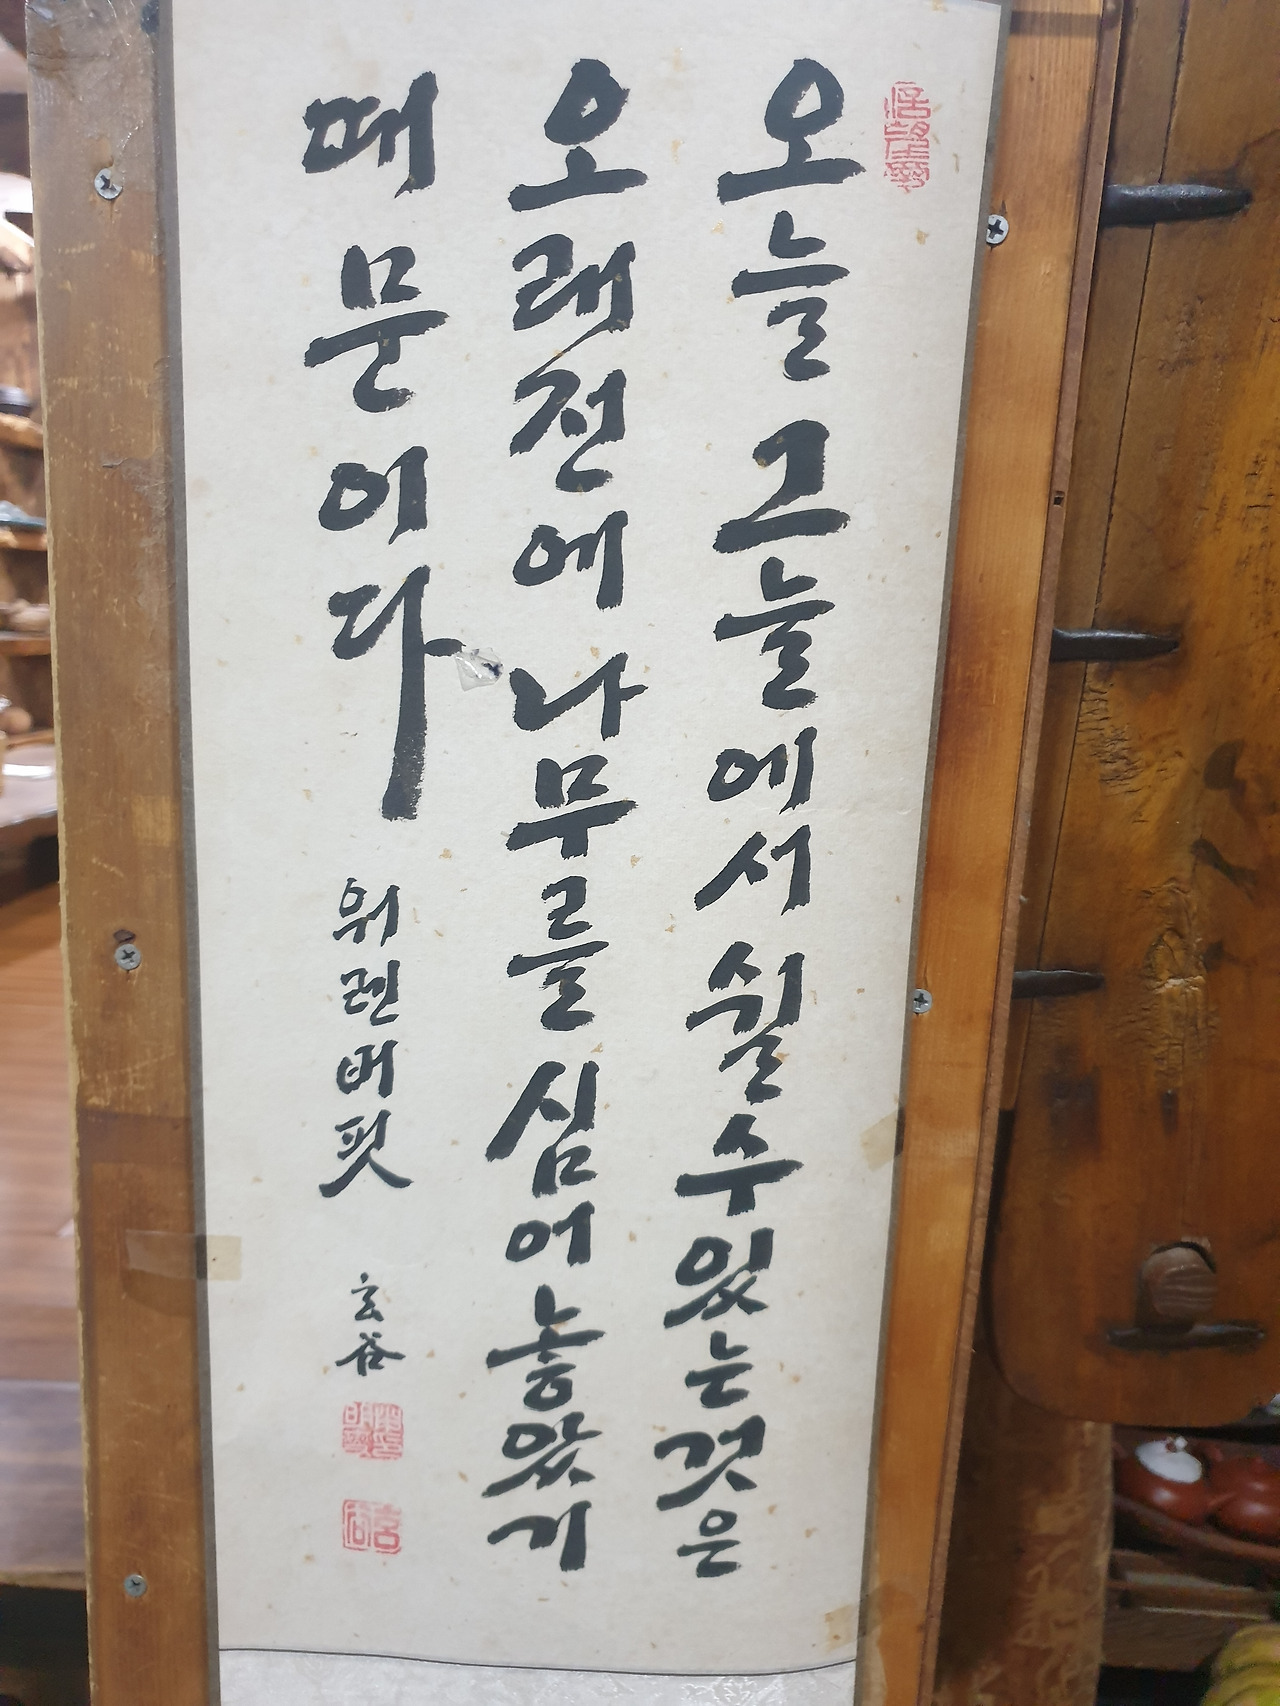 오늘 그늘에서 쉴 수 있는 것은
오래전에 나무를 심어 놓았기
때문이다
위렌버핏
玄谷